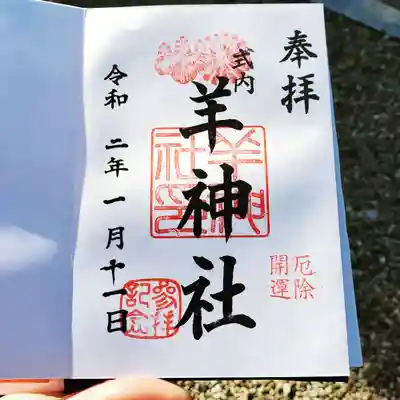 奉拝
厄除
開運
式内
羊神社
羊神
社印
参拝
記念
令和二年一月十一日